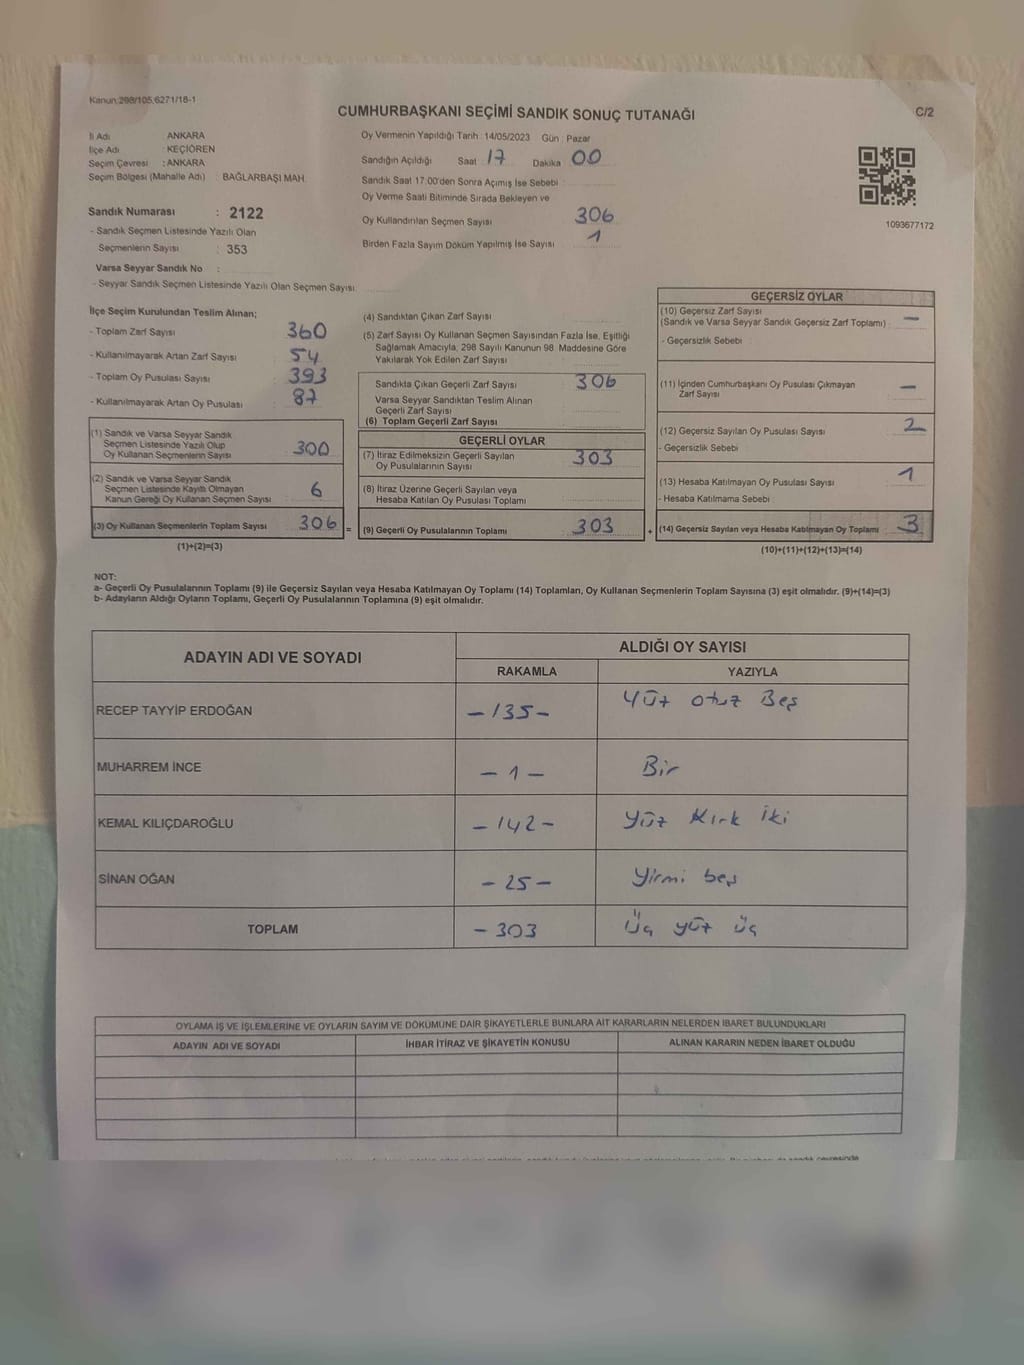 Kanun:298/105,6271/18-1
CUMHURBAŞKANI SEÇİMİ SANDIK SONUÇ TUTANAĞI
C/2
İl Adı : ANKARA
İlçe Adı : KEÇİÖREN
Seçim Çevresi : ANKARA
Seçim Bölgesi (Mahalle Adı) : BAĞLARBAŞI MAH.
Oy Vermenin Yapıldığı Tarih: 14/05/2023 Gün : Pazar
Sandığın Açıldığı Saat 17 Dakika 00
Sandık Saat 17:00'den Sonra Açımış İse Sebebi :
Oy Verme Saati Bitiminde Sırada Bekleyen ve
Oy Kullandırılan Seçmen Sayısı 306
Birden Fazla Sayım Döküm Yapılmış İse Sayısı 1
1093677172
Sandık Numarası : 2122
- Sandık Seçmen Listesinde Yazılı Olan
Seçmenlerin Sayısı : 353
Varsa Seyyar Sandık No :
- Seyyar Sandık Seçmen Listesinde Yazılı Olan Seçmen Sayısı:
İlçe Seçim Kurulundan Teslim Alınan;
- Toplam Zarf Sayısı 360
- Kullanılmayarak Artan Zarf Sayısı 54
- Toplam Oy Pusulası Sayısı 393
- Kullanılmayarak Artan Oy Pusulası 87
(1) Sandık ve Varsa Seyyar Sandık
Seçmen Listesinde Yazılı Olup
Oy Kullanan Seçmenlerin Sayısı 300
(2) Sandık ve Varsa Seyyar Sandık
Seçmen Listesinde Kayıtlı Olmayan
Kanun Gereği Oy Kullanan Seçmen Sayısı 6
(3) Oy Kullanan Seçmenlerin Toplam Sayısı 306 =
(1)+(2)=(3)
(4) Sandıktan Çıkan Zarf Sayısı
(5) Zarf Sayısı Oy Kullanan Seçmen Sayısından Fazla İse, Eşitliği
Sağlamak Amacıyla, 298 Sayılı Kanunun 98. Maddesine Göre
Yakılarak Yok Edilen Zarf Sayısı
Sandıkta Çıkan Geçerli Zarf Sayısı 306
Varsa Seyyar Sandıktan Teslim Alınan
Geçerli Zarf Sayısı
(6) Toplam Geçerli Zarf Sayısı
GEÇERLİ OYLAR
(7) İtiraz Edilmeksizin Geçerli Sayılan
Oy Pusulalarının Sayısı 303
(8) İtiraz Üzerine Geçerli Sayılan veya
Hesaba Katılan Oy Pusulası Toplamı
(9) Geçerli Oy Pusulalarının Toplamı 303 +
GEÇERSİZ OYLAR
(10) Geçersiz Zarf Sayısı
(Sandık ve Varsa Seyyar Sandık Geçersiz Zarf Toplamı) : —
- Geçersizlik Sebebi
(11) İçinden Cumhurbaşkanı Oy Pusulası Çıkmayan
Zarf Sayısı —
(12) Geçersiz Sayılan Oy Pusulası Sayısı 2
- Geçersizlik Sebebi
(13) Hesaba Katılmayan Oy Pusulası Sayısı 1
- Hesaba Katılmama Sebebi :
(14) Geçersiz Sayılan veya Hesaba Katılmayan Oy Toplamı 3
(10)+(11)+(12)+(13)=(14)
NOT:
a- Geçerli Oy Pusulalarının Toplamı (9) ile Geçersiz Sayılan veya Hesaba Katılmayan Oy Toplamı (14) Toplamları, Oy Kullanan Seçmenlerin Toplam Sayısına (3) eşit olmalıdır. (9)+(14)=(3)
b- Adayların Aldığı Oyların Toplamı, Geçerli Oy Pusulalarının Toplamına (9) eşit olmalıdır.
ADAYIN ADI VE SOYADI
ALDIĞI OY SAYISI
RAKAMLA YAZIYLA
RECEP TAYYİP ERDOĞAN -135- Yüz otuz Beş
MUHARREM İNCE -1- Bir
KEMAL KILIÇDAROĞLU -142- Yüz Kırk İki
SİNAN OĞAN -25- Yirmi beş
TOPLAM -303 Üç yüz üç
OYLAMA İŞ VE İŞLEMLERİNE VE OYLARIN SAYIM VE DÖKÜMÜNE DAİR ŞİKAYETLERLE BUNLARA AİT KARARLARIN NELERDEN İBARET BULUNDUKLARI
ADAYIN ADI VE SOYADI İHBAR İTİRAZ VE ŞİKAYETİN KONUSU ALINAN KARARIN NEDEN İBARET OLDUĞU